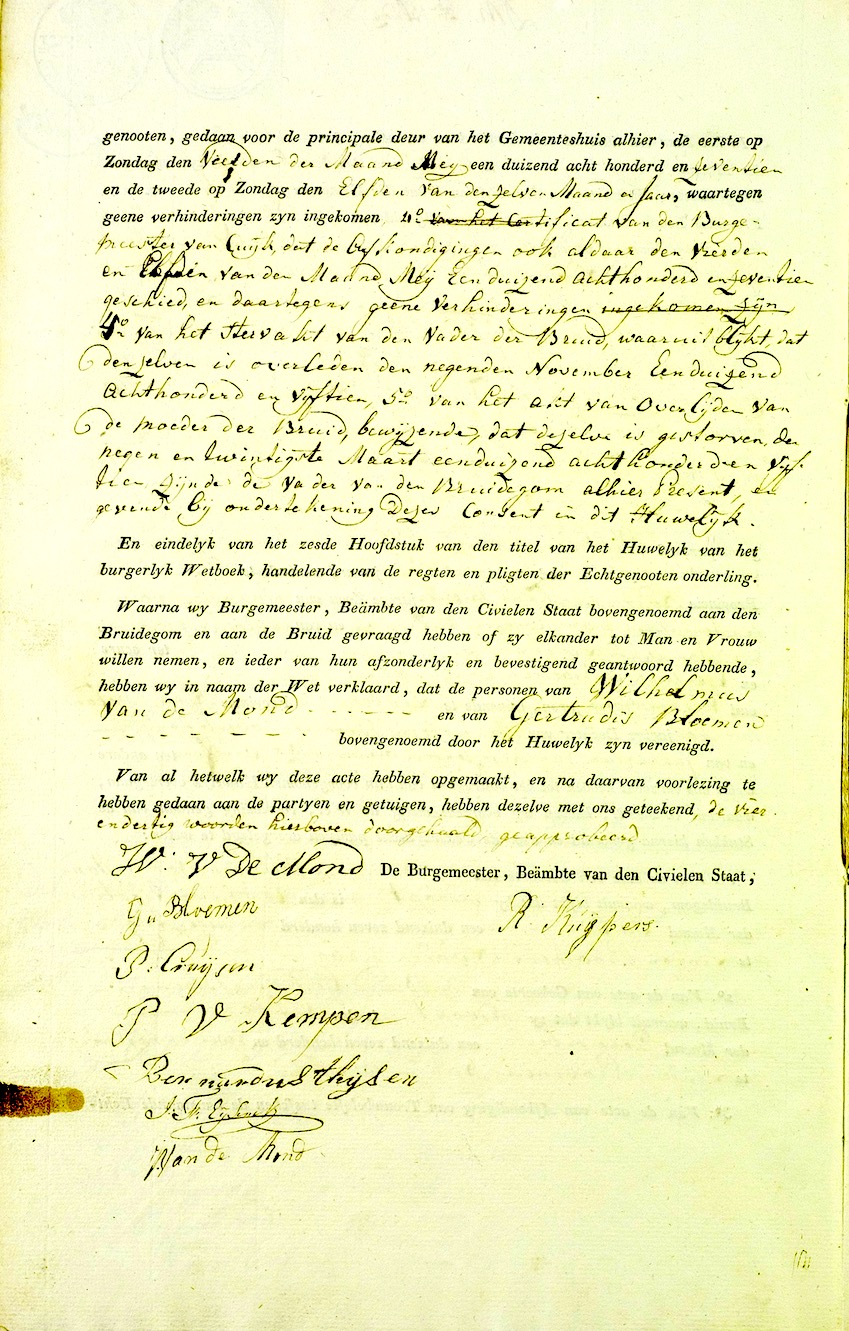 genooten, gedaan voor de principale deur van het Gemeenteshuis alhier, de eerste op
Zondag den Vierden der Maand Meij een duizend acht honderd en zeventien
en de tweede op Zondag den Elfden van denzelven Maand en Jaar, waartegen
geene verhinderingen zyn ingekomen 4º van het Certificat van den Burge-
meester van Cuijk, dat de afkondigingen ook aldaar den vierden
en Elfden van den Maand Meij Eenduizend achthonderd en zeventien
geschied, en daartegens geene verhinderingen ingekomen zijn
4º van het stervakt van den Vader der Bruid, waaruit blijkt, dat
denzelven is overleden den negenden November Eenduizend
achthonderd en vijftien, 5º van het akt van Overlijden van
de moeder der Bruid, bewijzende, dat dezelve is gestorven, den
negen en twintigste Maart eenduizend achthonderd en vijf-
tien zijnde de Vader van den Bruidegom alhier Present, en
gevende bij ondertekening dezes Consent in dit Huwelijk.
En eindelyk van het zesde Hoofdstuk van den titel van het Huwelyk van het
burgerlyk Wetboek, handelende van de regten en pligten der Echtgenooten onderling.
Waarna wy Burgemeester, Beämbte van den Civielen Staat bovengenoemd aan den
Bruidegom en aan de Bruid gevraagd hebben of zy elkander tot Man en Vrouw
willen nemen, en ieder van hun afzonderlyk en bevestigend geantwoord hebbende,
hebben wy in naam der Wet verklaard, dat de personen van Wilhelmus
van de Mond - - - - - en van Gertrudis Bloemen
- - - - - - - bovengenoemd door het Huwelyk zyn vereenigd.
Van al hetwelk wy deze acte hebben opgemaakt, en na daarvan voorlezing te
hebben gedaan aan de partyen en getuigen, hebben dezelve met ons geteekend, de vier
endertig woorden hierboven doorgehaald, geapprobeerd
W: V De Mond De Burgemeester, Beämbte van den Civielen Staat,
G Bloemen
R Kuijpers.
P: Cruijsen
P V Kempen
Bernardus thijsen
Van de Mond